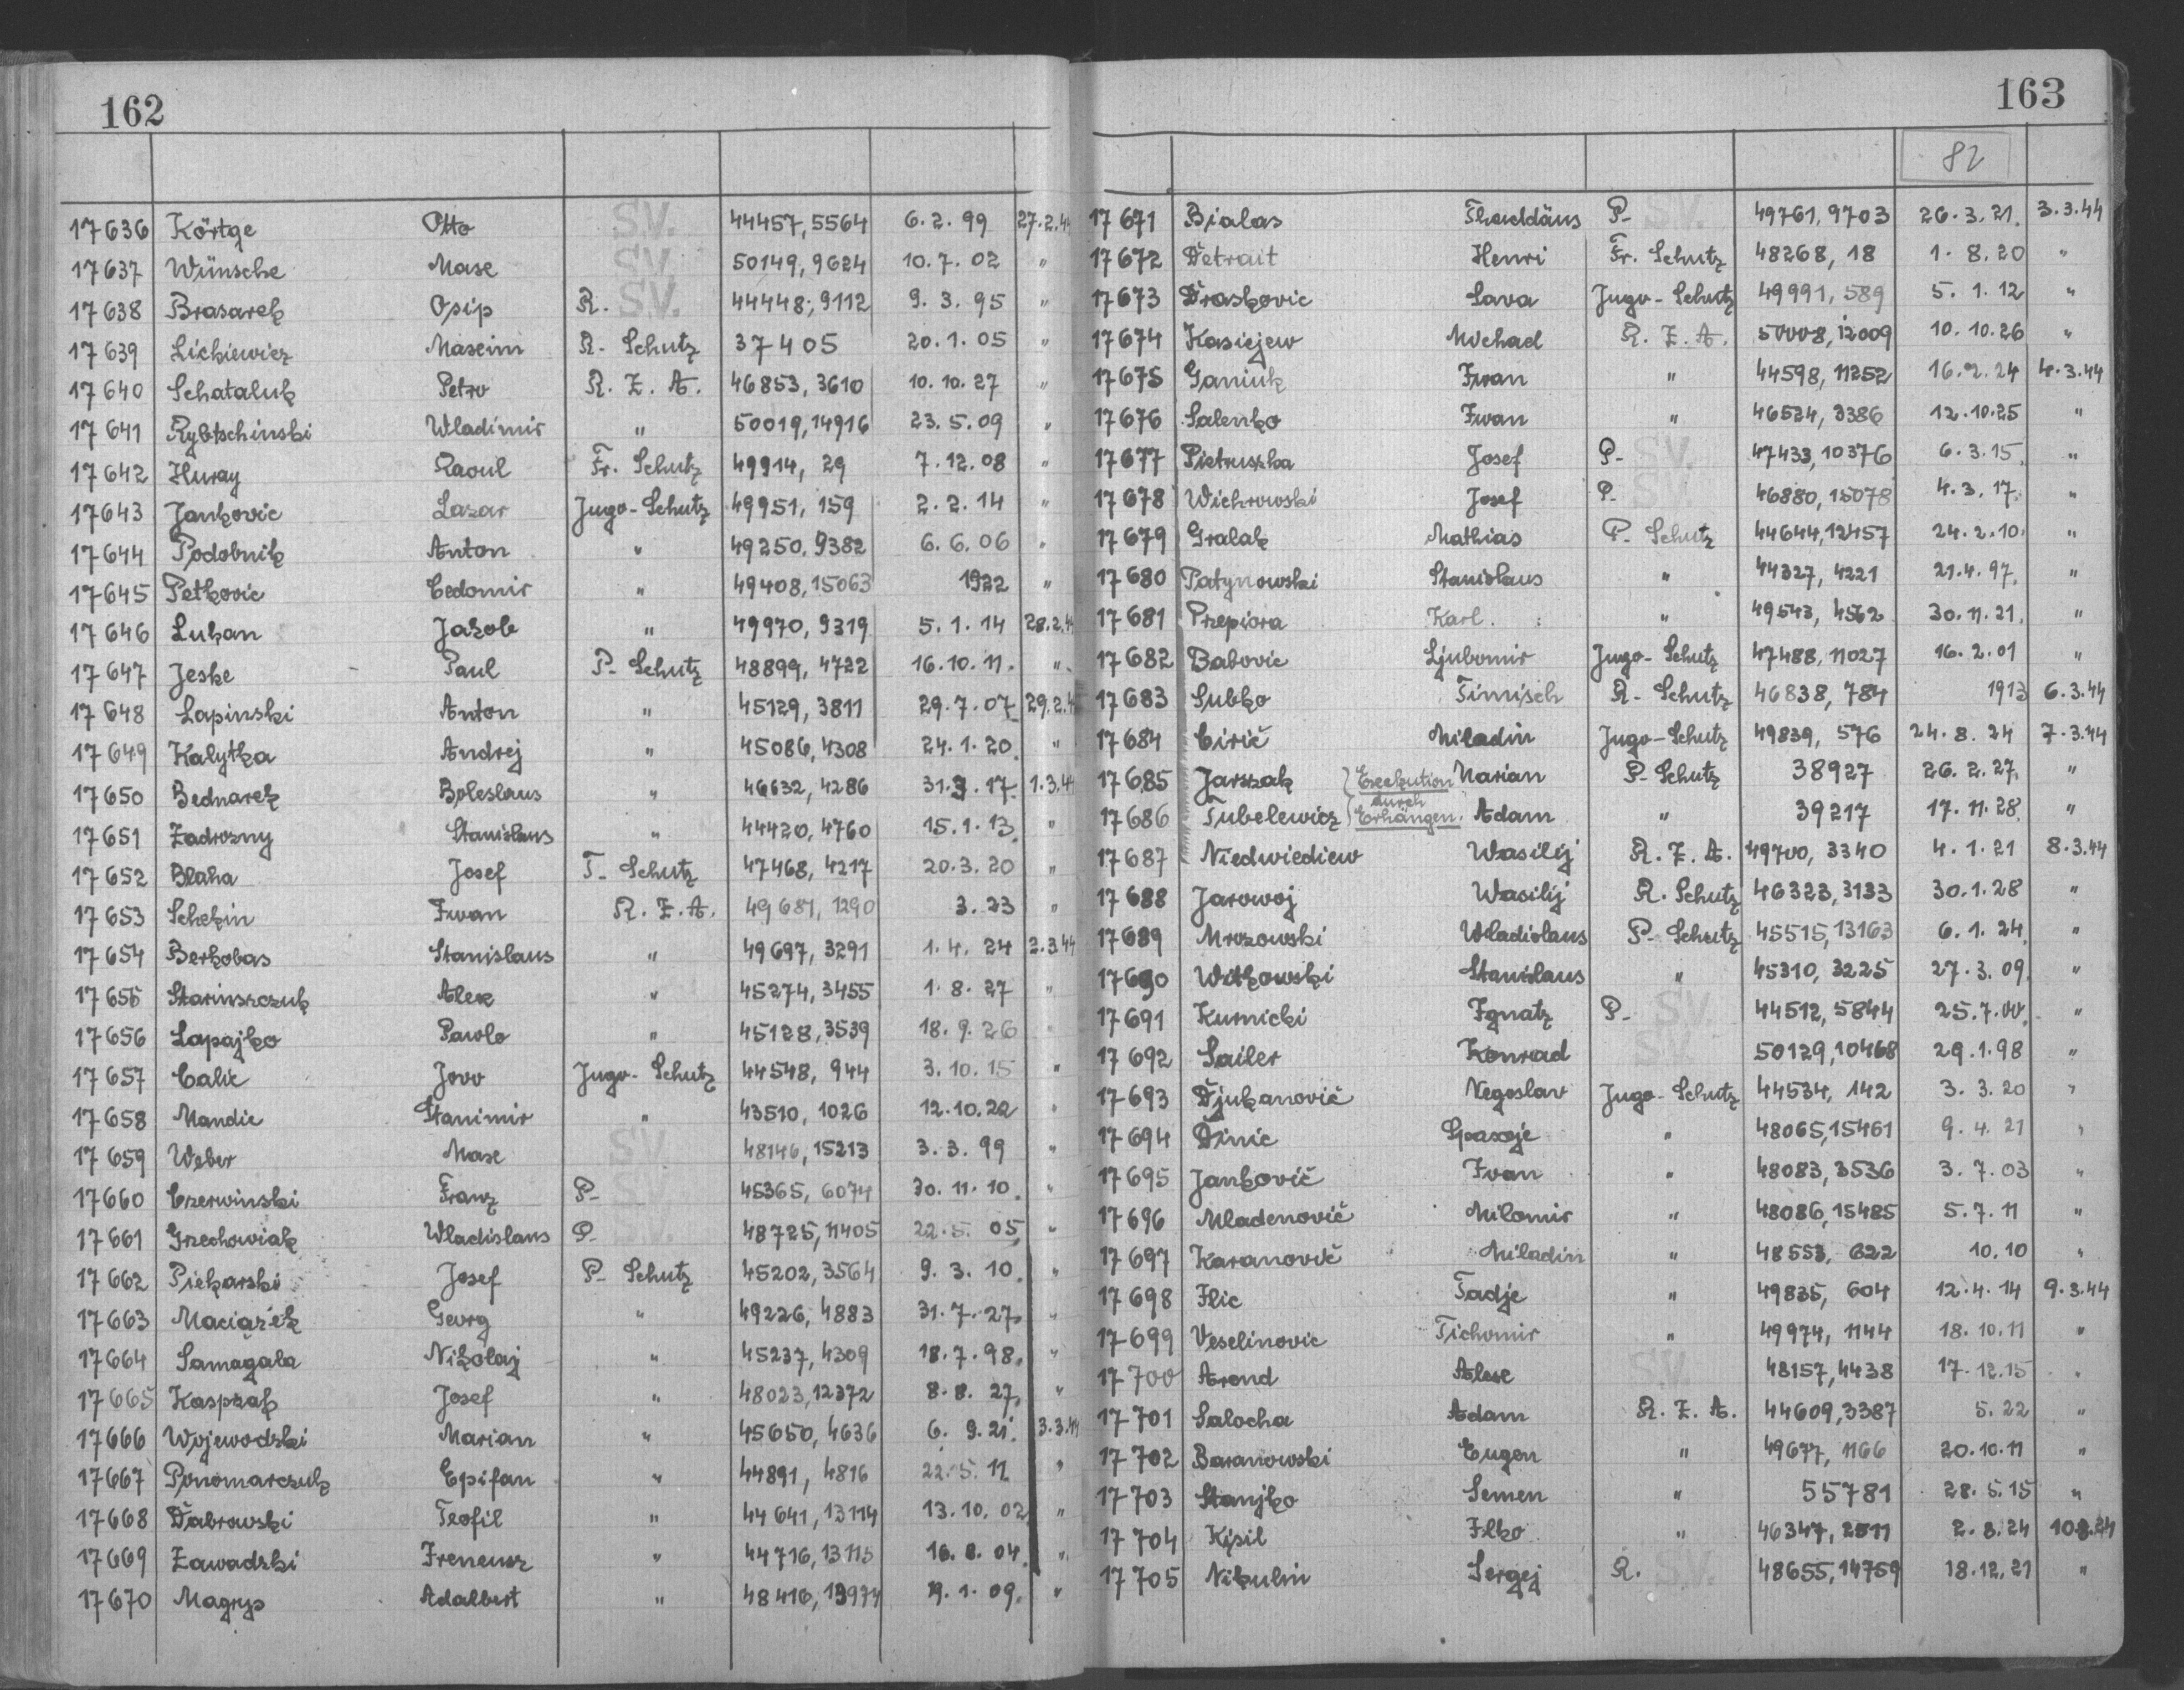 162
17636 Körtge Otto S.V. 44457, 5564 6.2.99 27.2.44
17637 Wünsche Maxe S.V. 50149, 9624 10.7.02 "
17638 Brasarek Osip R. S.V. 44448, 9112 9.3.95 "
17639 Lickiewicz Maxim R. Schutz 37405 20.1.05 "
17640 Schataluk Petro R.Z.A. 46853, 3610 10.10.27 "
17641 Rybtschinski Wladimir " 50019, 14916 23.5.09 "
17642 Huray Raoul Fr. Schutz 49914, 29 7.12.08 "
17643 Jankovic Lazar Jugo-Schutz 49951, 159 2.2.14 "
17644 Podobnik Anton " 49250, 9382 6.6.06 "
17645 Petkovic Cedomir " 49408, 15063 1922 "
17646 Lukan Jakob " 49970, 9319 5.1.14 28.2.44
17647 Jeske Paul P- Schutz 48899, 4722 16.10.11. "
17648 Lapinski Anton " 45129, 3811 29.7.07 29.2.4
17649 Kalytka Andrej " 45086, 4308 24.1.20. "
17650 Bednarek Boleslaus " 46632, 4286 31.3.17. 1.3.44
17651 Zadrozny Stanislaus " 44420, 4760 15.1.13. "
17652 Blaha Josef T- Schutz 47468, 4217 20.3.20 "
17653 Schekin Iwan R.Z.A. 49681, 1290 3.23 "
17654 Berkobas Stanislaus " 49697, 3291 1.4.24 2.3.44
17655 Starinszczuk Alex " 45274, 3455 1.8.27 "
17656 Lapajko Pawlo " 45128, 3539 18.9.26 "
17657 Calic Jovo Jugo-Schutz 44548, 944 3.10.15 "
17658 Mandic Stanimir " 43510, 1026 12.10.22 "
17659 Weber Max S.V. 48146, 15213 3.3.99 "
17660 Czerwinski Franz P- S.V. 45365, 6074 30.11.10. "
17661 Grzechowiak Wladislaus P- S.V. 48725, 11405 22.5.05. "
17662 Piekarski Josef P- Schutz 45202, 3564 9.3.10. "
17663 Maciazek Georg " 49226, 4883 31.7.27. "
17664 Samagala Nikolaj " 45237, 4309 18.7.98. "
17665 Kasprzak Josef " 48023, 12372 8.8.27. "
17666 Wojewodski Marian " 45650, 4636 6.9.21. 3.3.44
17667 Ponomarczuk Epifan " 44891, 4816 22.5.11. "
17668 Dabrowski Teofil " 44641, 13114 13.10.02 "
17669 Zawadzki Ireneusz " 44716, 13115 16.8.04. "
17670 Magrys Adalbert " 48416, 13974 9.1.09. "
163
82
17671 Bialas Thaddäus P- S.V. 49761, 9703 26.3.21. 3.3.44
17672 Detrait Henri Fr. Schutz 48268, 18 1.8.20 "
17673 Draskovic Sava Jugo-Schutz 49991, 589 5.1.12 "
17674 Kasiejew Michael R.Z.A. 50008, 12009 10.10.26 "
17675 Ganiuk Iwan " 44598, 11252 16.2.24 4.3.44
17676 Salenko Iwan " 46524, 3386 12.10.25 "
17677 Pietruszka Josef P- S.V. 47433, 10376 6.3.15. "
17678 Wichrowski Josef P- S.V. 46880, 15078 4.3.17. "
17679 Gralak Mathias P- Schutz 44644, 12457 24.2.10. "
17680 Patynowski Stanislaus " 44327, 4221 21.4.97. "
17681 Przepiora Karl " 49543, 4562 30.11.21. "
17682 Babovic Ljubomir Jugo-Schutz 47488, 11027 16.2.01 "
17683 Subko Timisch R- Schutz 46838, 784 1913 6.3.44
17684 Cirič Miladin Jugo-Schutz 49839, 576 24.8.24 7.3.44
17685 Jarszak Exekution Marian P- Schutz 38927 26.2.27. "
durch
17686 Tubelewicz Erhängen. Adam " 39217 17.11.28. "
17687 Niedwiediew Wasilij R.Z.A. 49700, 3340 4.1.21 8.3.44
17688 Jarowoj Wasilij R. Schutz 46323, 3133 30.1.28 "
17689 Mrozowski Wladislaus P- Schutz 45515, 13163 6.1.24. "
17690 Witkowski Stanislaus " 45310, 3225 27.3.09. "
17691 Kurnicki Ignatz P- S.V. 44512, 5844 25.7.00. "
17692 Sailer Konrad S.V. 50129, 10468 29.1.98 "
17693 Djukanovič Negoslav Jugo-Schutz 44534, 142 3.3.20 "
17694 Dinic Gasoje " 48065, 15461 9.4.21 "
17695 Jankovič Ivan " 48083, 3536 3.7.03 "
17696 Mladenovič Milomir " 48086, 15485 5.7.11 "
17697 Karanovič Miladin " 48553, 622 10.10 "
17698 Ilic Tadje " 49835, 604 12.4.14 9.3.44
17699 Veselinovic Tichomir " 49974, 1144 18.10.11 "
17700 Arond Alexe S.V. 48157, 4438 17.12.15 "
17701 Salocha Adam R.Z.A. 44609, 3387 5.22 "
17702 Baranowski Eugen " 49677, 1166 20.10.11 "
17703 Stanjko Semen " 55781 28.5.15 "
17704 Kisil Ilko " 46347, 2511 2.8.24 10.3.44
17705 Nikulin Sergej R. S.V. 48655, 14759 18.12.21 "